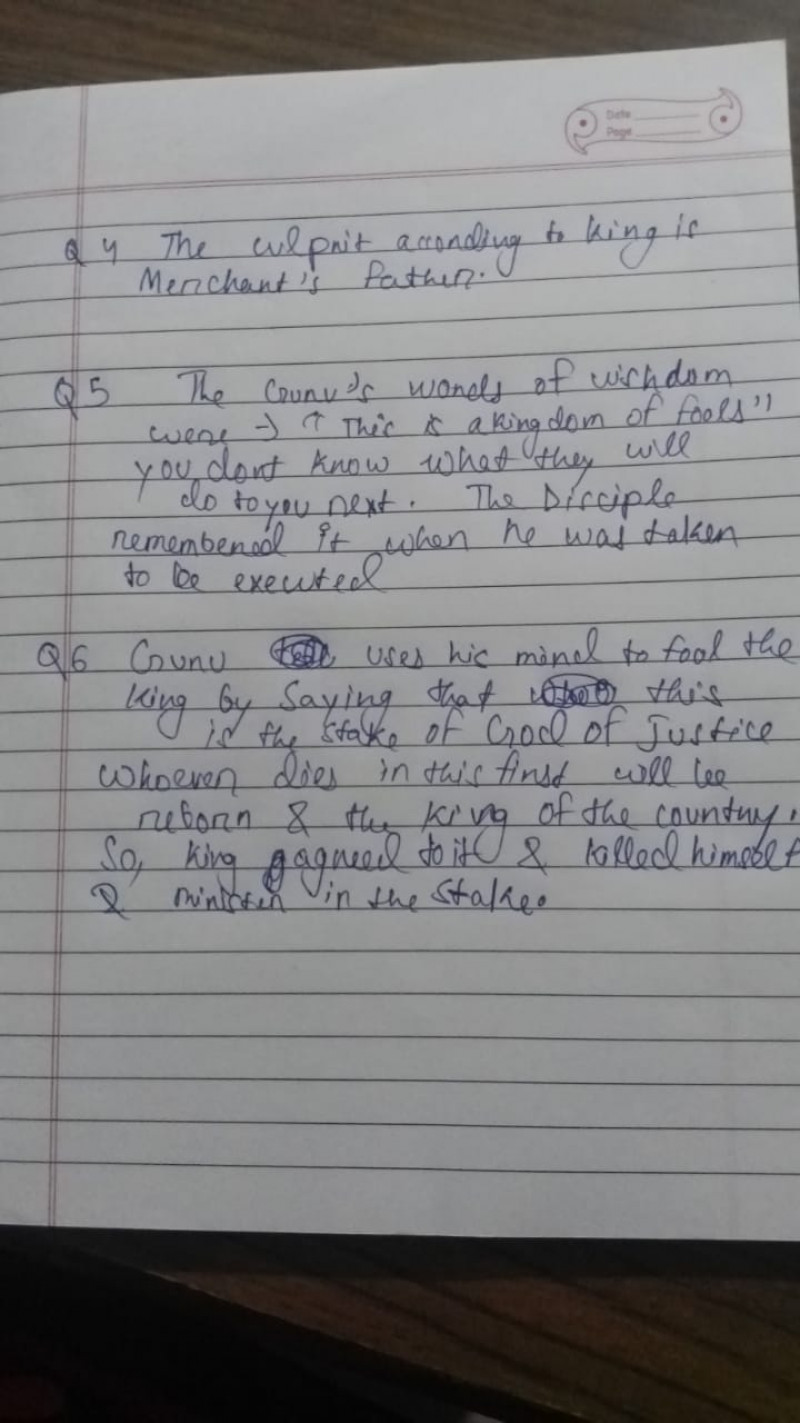 Date
Page
Q 4 The culprit according to king is
Merchant's father.
Q 5 The Guru's words of wishdom
were → "This is a kingdom of fools"
you dont know what they will
do to you next. The Disciple
remembered it when he was taken
to be executed
Q 6 Guru uses his mind to fool the
king by saying that this
is the stake of God of Justice
Whoever dies in this first will be
reborn & the king of the country.
So, king agreed to it & killed himself
& minister in the stake.